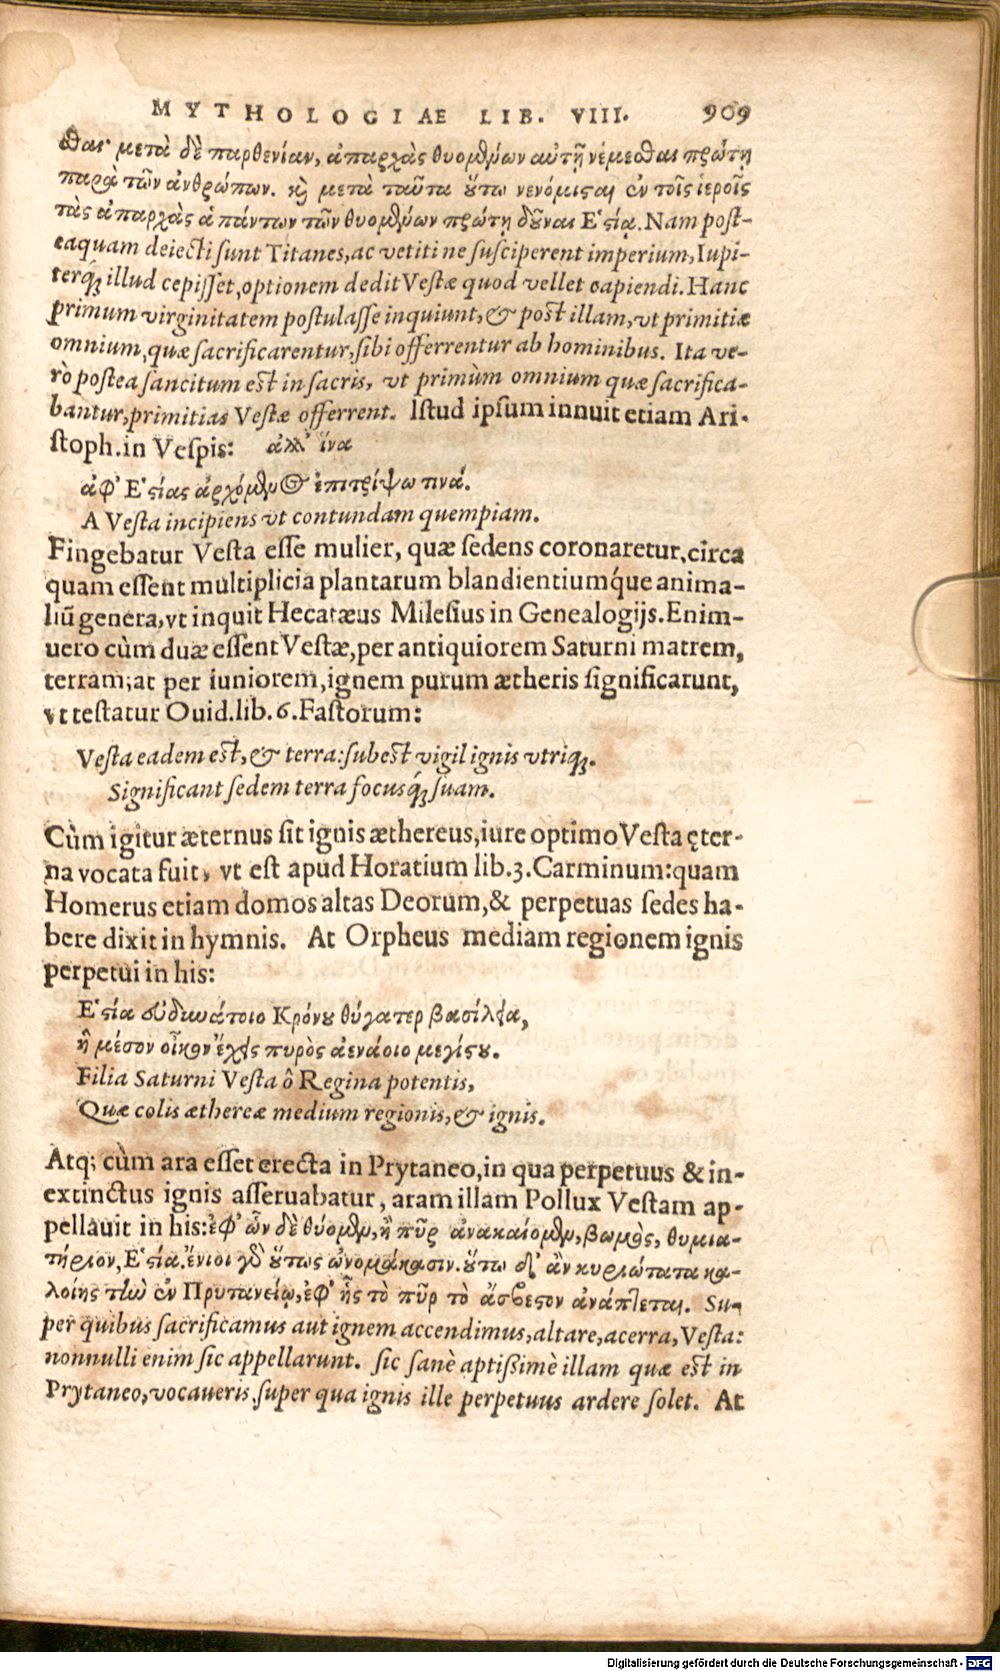 MYTHOLOGIAE LIB. VIII. 909
σθαι μετὰ δὲ παρθενίαν, ἀπαρχὰς θυομένων αὐτῇ νέμεσθαι πρώτῃ
παρὰ τῶν ἀνθρώπων. καὶ μετὰ ταῦτα οὕτω νενόμισται ἐν τοῖς ἱεροῖς
τὰς ἀπαρχὰς ἁπάντων τῶν θυομένων πρώτῃ δοῦναι Ἑστίᾳ. Nam poſt-
eaquam deiecti ſunt Titanes, ac vetiti ne ſuſciperent imperium, Iupi-
terq́; illud cepiſſet, optionem dedit Veſtæ quod vellet capiendi. Hanc
primum virginitatem poſtulaſſe inquiunt, & poſt illam, vt primitiæ
omnium, quæ ſacrificarentur, ſibi offerrentur ab hominibus. Ita ve-
rò poſtea ſancitum eſt in ſacris, vt primùm omnium quæ ſacrifica-
bantur, primitias Veſtæ offerrent. Iſtud ipſum innuit etiam Ari-
ſtoph. in Veſpis: ἀλλ' ἵνα
ἀφ' Ἑστίας ἀρχόμενος ἐπιτρίψω τινά.
A Veſta incipiens vt contundam quempiam.
Fingebatur Veſta eſſe mulier, quæ ſedens coronaretur, circa
quam eſſent multiplicia plantarum blandientiumq́ue anima-
liū genera, vt inquit Hecatæus Mileſius in Genealogijs. Enim-
uero cùm duæ eſſent Veſtæ, per antiquiorem Saturni matrem,
terram; at per iuniorem, ignem purum ætheris ſignificarunt,
vt teſtatur Ouid. lib. 6. Faſtorum:
Veſta eadem eſt, & terra: ſubeſt vigil ignis vtriq́;.
Significant ſedem terra focusq́; ſuam.
Cùm igitur æternus ſit ignis æthereus, iure optimo Veſta ęter-
na vocata fuit, vt eſt apud Horatium lib. 3. Carminum: quam
Homerus etiam domos altas Deorum, & perpetuas ſedes ha-
bere dixit in hymnis. At Orpheus mediam regionem ignis
perpetui in his:
Ἑστία εὐδυνάτοιο Κρόνου θύγατερ βασίλεια,
ἣ μέσον οἶκον ἔχεις πυρὸς ἀενάοιο μεγίστου.
Filia Saturni Veſta ô Regina potentis,
Quæ colis æthereæ medium regionis, & ignis.
Atq; cùm ara eſſet erecta in Prytaneo, in qua perpetuus & in-
extinctus ignis aſſeruabatur, aram illam Pollux Veſtam ap-
pellauit in his: ἐφ' ὧν δὲ θύομεν, ἢ πῦρ ἀνακαίομεν, βωμὸς, θυμια-
τήριον, Ἑστία. ἔνιοι γὰρ οὕτως ὠνομάκασιν. οὕτω δ' ἂν κυριώτατα κα-
λοίης τὴν ἐν Πρυτανείῳ, ἐφ' ἧς τὸ πῦρ τὸ ἄσβεστον ἀνάπτεται. Su-
per quibus ſacrificamus aut ignem accendimus, altare, acerra, Veſta:
nonnulli enim ſic appellarunt. ſic ſanè aptißimè illam quæ eſt in
Prytaneo, vocaueris, ſuper qua ignis ille perpetuus ardere ſolet. At
Digitalisierung gefördert durch die Deutsche Forschungsgemeinschaft - DFG